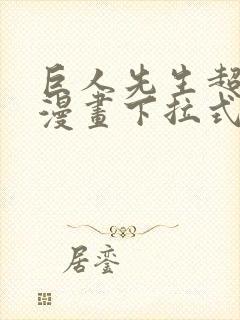 巨人先生超
漫畫下拉式
居銮